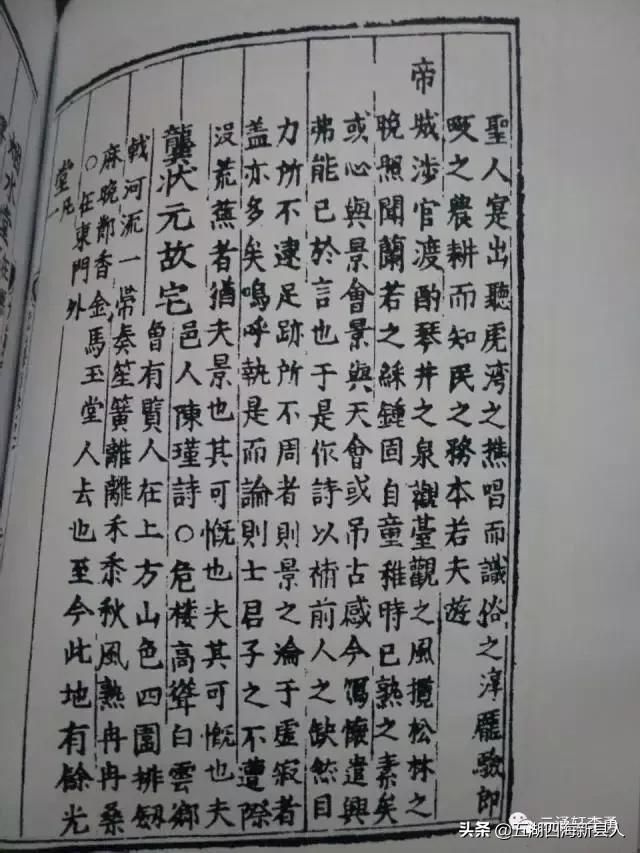 聖人寔出聽虎湾之樵唱而識俗之淳厖驗郎
畈之農耕而知民之務本若夫遊
帝城涉官渡酌琴井之泉觀臺觀之風攬松林之
晚照聞蘭若之綵鍾固自童稚時已熟之素矣
或心與景會景與天會或吊古感今寫懷遣興
弗能已於言也于是作詩以補前人之缺然目
力所不逮足跡所不周者則景之淪于虛寂者
盖亦多矣嗚呼執是而論則士君子之不遭際
没荒蕉者猶夫景也其可慨也夫其可慨也夫
龔狀元故宅邑人陳瑾詩○危楼高聳白雲鄉
曾有賢人在上方山色四圍排劔
戟河流一帶奏笙簧離離禾黍秋風熟冉冉桑
麻晚鄰香金馬玉堂人去也至今此地有餘光
○在東門外
堂凡一
头条@五湖四海新县人
云泽轩李勇